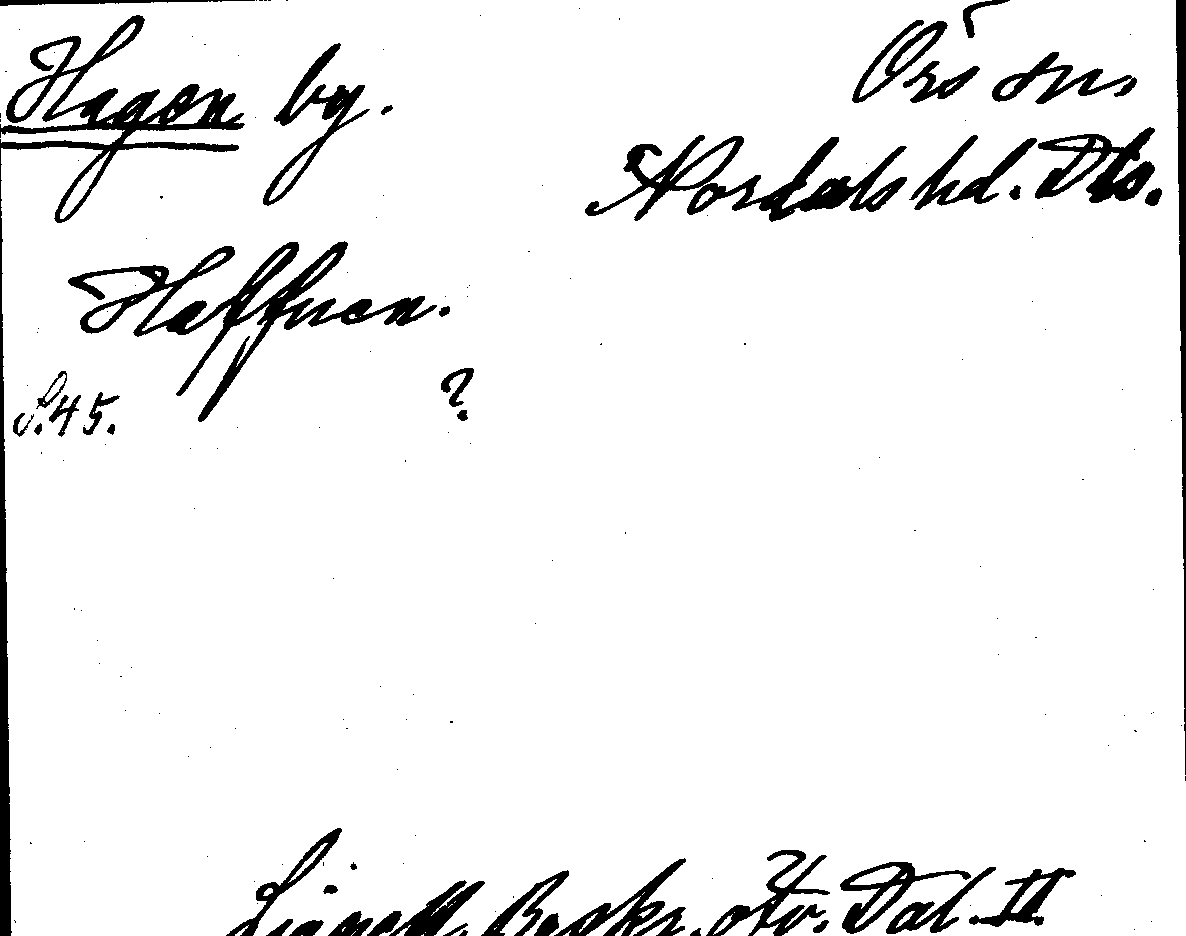 Hagen by.
Örs sn,
Nordals hd. Dls.
Haffuen.
S.45. ?
Lignell, Beskr. öfv. Dal. II.